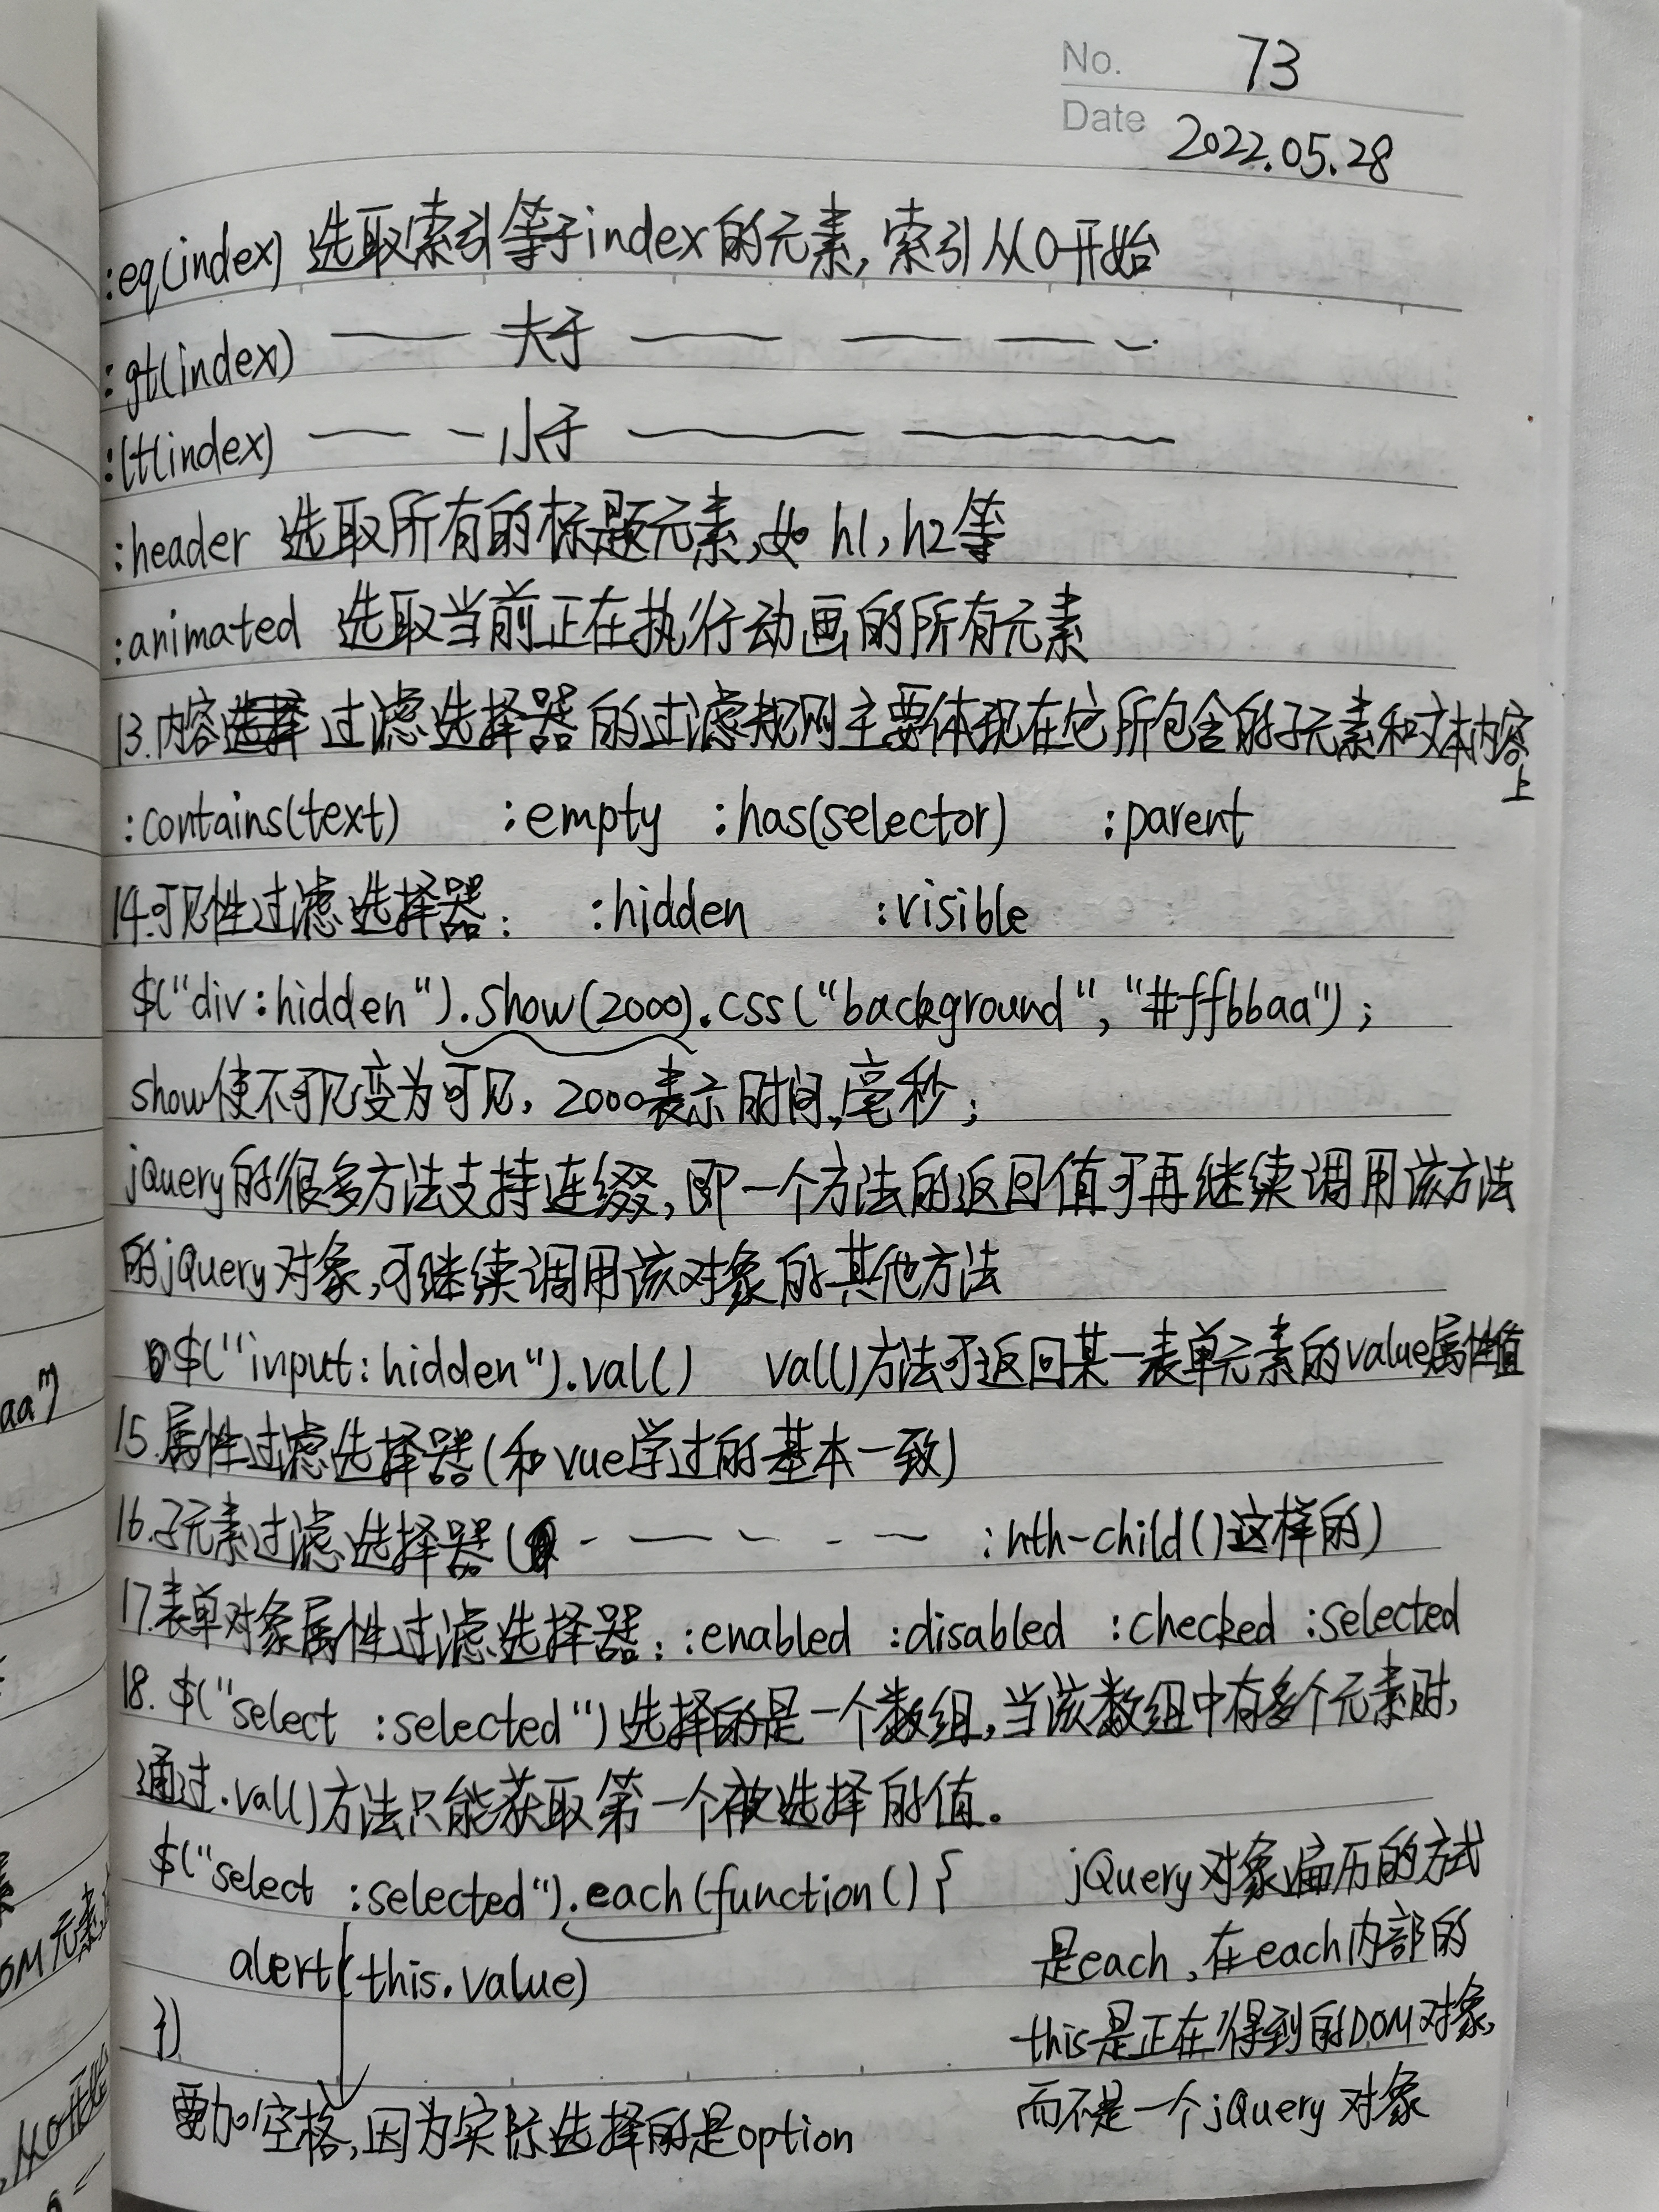 No. 73
Date 2022.05.28
:eq(index) 选取索引等于index的元素,索引从0开始
:gt(index) —— 大于 —— —— —— -
:lt(index) —— - 小于 —— ——
:header 选取所有的标题元素,如 h1,h2等
:animated 选取当前正在执行动画的所有元素
13.内容选择过滤选择器的过滤规则主要体现在它所包含的子元素和文本内容
上
:contains(text) :empty :has(selector) :parent
14.可见性过滤选择器: :hidden :visible
$("div:hidden").show(2000).css("background","#ffbbaa");
show使不可见变为可见,2000表示时间,毫秒;
jQuery的很多方法支持连缀,即一个方法的返回值可再继续调用该方法
的jQuery对象,可继续调用该对象的其他方法
$("input:hidden").val() val()方法可返回某一表单元素的value属性值
15.属性过滤选择器(和vue学过的基本一致)
16.子元素过滤选择器( - — - - — :nth-child()这样的)
17.表单对象属性过滤选择器: :enabled :disabled :checked :selected
18. $("select :selected")选择的是一个数组,当该数组中有多个元素时,
通过.val()方法只能获取第一个被选择的值。
$("select :selected").each(function(){
alert(this.value)
})
要加空格,因为实际选择的是option
jQuery对象遍历的方式
是each,在each内部的
this是正在得到的DOM对象,
而不是一个jQuery对象
aa")
OM元素
从0开始